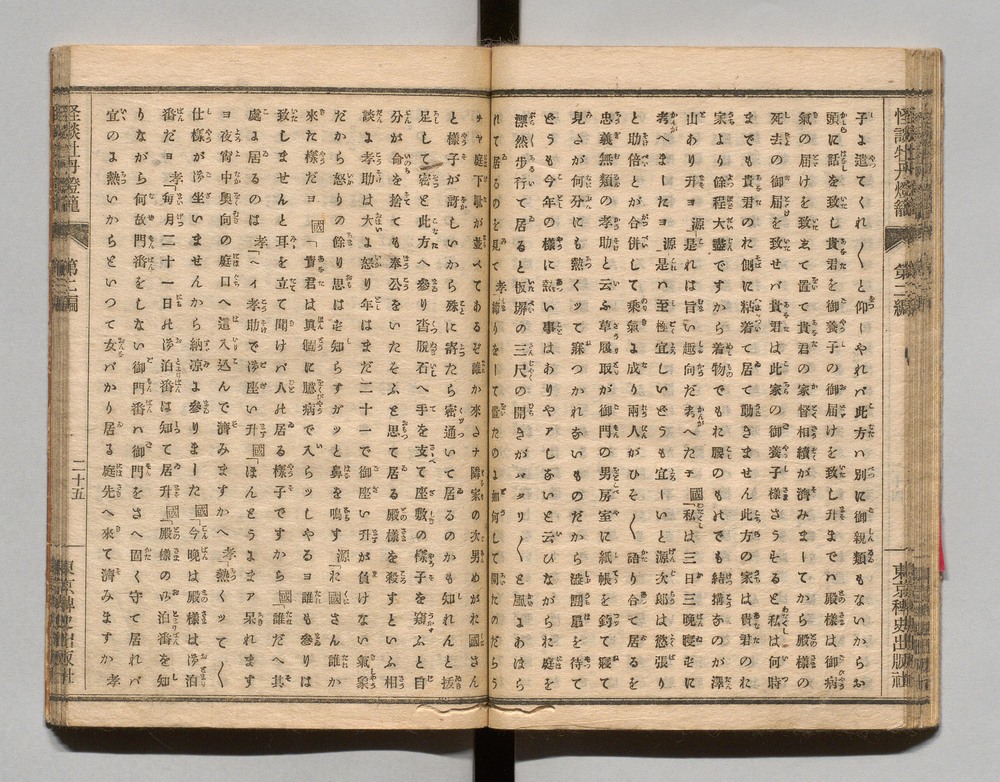 怪談牡丹燈籠 第二編 東京稗史出版社
子よ遣てくれ〱と仰ーやれバ此方ハ別に御親類もないからお
頭に話を致し貴君を御養子の御届けを致し升までハ殿様は御病
氣の届けを致ゑて置て貴君の家督相續が濟みまーてから殿様の
死去の御届を致せバ貴君は此家の御養子様さうせると私は何時
までも貴君のれ側に粘着て居て動きません此方の家は貴君のれ
家より餘程大盡ですから着物でもれ腰のもれでも結搆なのが澤
山あり升ヨ 源「是れは旨い趣向だ考へたネ 國「私は三日三晩寝ずに
考へまーたヨ 源是ハ至極宜しいどうも宜ーいと源次郎は慾張り
と助倍とが合併して乗氣よ成り兩人がひそ〱語り合て居るを
忠義無類の孝助と云ふ草履取が御門の男房室に紙帳を釣て寝て
見さが何分にも熱くッて寐つかれないものだから澁團扇を持て
どうも今年の様に熱い事はありやアしないと云ひながられ庭を
漂然歩行て居ると板塀の三尺の開きがバタリ〱と風よあほら
れて居るのを見て 孝締りをーて置たのよ如何して開たのだらう
ヲヤ庭下駄が並べてあるぞ誰か來さナ隣家の次男めがれ國さん
と様子が訝しいから殊に寄たら密通いて居るのかも知れんと拔
足して密と此方へ參り沓脱石へ手を支て座敷の様子を窺ふと自
分が命を捨ても奉公をいたそふと思て居る殿様を殺すといふ相
談よ孝助は大よ怒り年はまだ二十一で御座い升が負けない氣象
だから怒りの餘り思はず知らずガッと鼻を鳴す 源「れ國さん誰か
來た様だヨ 國「貴君は眞個に臆病で入らッしやるヨ誰も參りは
致しませんと耳を立て聞けバ人の居る様子ですから 國「誰だへ其
處よ居るのは 孝「ヘイ孝助で渉座い升 國「ほんとうよまア呆れます
ヨ夜宵中奥向の庭口へ這入込んで濟みますかへ 孝「熱くッて〱
仕様が渉坐いませんから納凉よ參りまーた 國「今晩は殿様は渉泊
番だヨ 孝「旬月二十一日の渉泊番は知て居升 國「殿様のお泊番を知
りながら何故門番をしない御門番ハ御門をさへ固く守て居れバ
宜のよ熱いからといつて女バかり居る庭先へ來て濟みますか 孝
怪談牡丹燈籠 第二編 二十五 東京稗史出版社